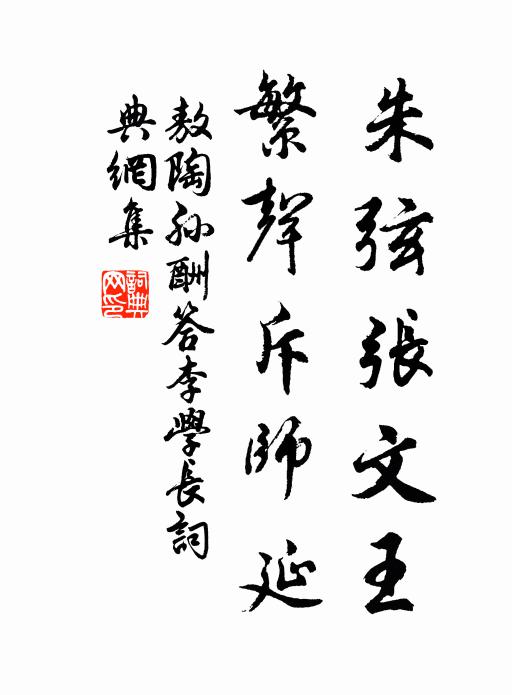 朱弦張文王
繁聲斥師延
敖陶孙酬答李學長詞
典網集
詞典
网印